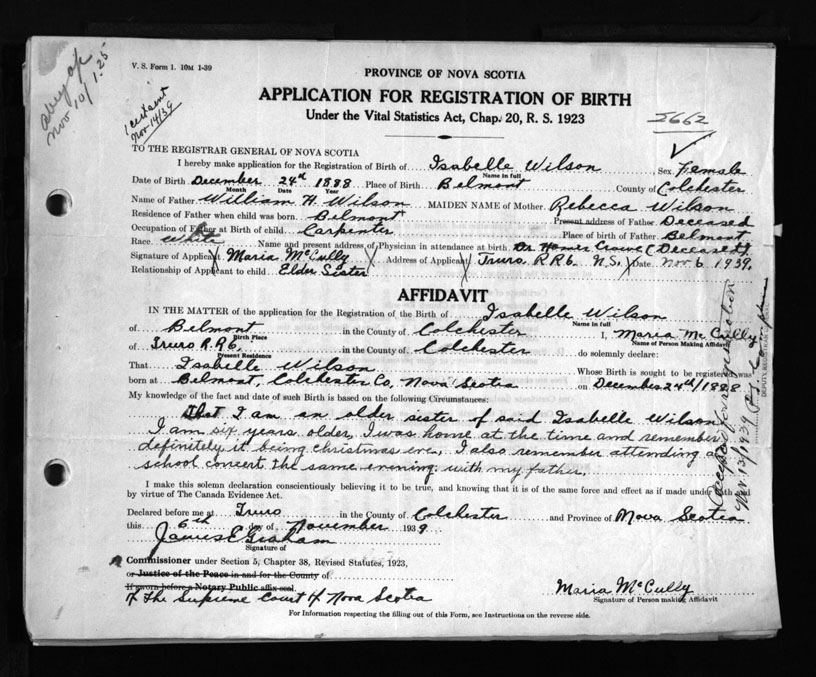 V. S. Form 1. 10M 1-39
Nov 10/1.25
1 cert sent
Nov 14/39
PROVINCE OF NOVA SCOTIA
APPLICATION FOR REGISTRATION OF BIRTH
Under the Vital Statistics Act, Chap. 20, R. S. 1923
5662
TO THE REGISTRAR GENERAL OF NOVA SCOTIA
I hereby make application for the Registration of Birth of Isabelle Wilson Sex Female
Name in full
Date of Birth December 24th 1888 Place of Birth Belmont County of Colchester
Month Date Year
Name of Father William H. Wilson MAIDEN NAME of Mother Rebecca Wilson
Residence of Father when child was born Belmont Present address of Father Deceased
Occupation of Father at Birth of child Carpenter Place of Birth of Father Belmont
Race White Name and present address of Physician in attendance at birth Dr Homer Crowe (Deceased)
Signature of Applicant Maria McCully Address of Applicant Truro R.R 6. N.S. Date Nov 6 1939.
Relationship of Applicant to child Elder Sister
AFFIDAVIT
IN THE MATTER of the application for the Registration of the Birth of Isabelle Wilson
Name in full
of Belmont in the County of Colchester I, Maria McCully
Birth Place Name of Person Making Affidavit
of Truro R.R 6. in the County of Colchester do solemnly declare:
Present Residence
That Isabelle Wilson Whose Birth is sought to be registered, was
born at Belmont, Colchester Co, Nova Scotia on December 24th/1888
My knowledge of the fact and date of such Birth is based on the following Circumstances:
That I am an older sister of said Isabelle Wilson
I am six years older, I was home at the time and remember
definitely it being christmas eve, I also remember attending a
school concert the same evening with my father.
I make this solemn declaration conscientiously believing it to be true, and knowing that it is of the same force and effect as if made under oath and
by virtue of The Canada Evidence Act.
Declared before me at Truro in the County of Colchester and Province of Nova Scotia
this 6th day of November 1939
James E Graham
Signature of
A Commissioner under Section 5, Chapter 38, Revised Statutes, 1923,
or Justice of the Peace in and for the County of
If sworn before a Notary Public affix seal.
of The Supreme Court of Nova Scotia
Maria McCully
Signature of Person making Affidavit
For Information respecting the filling out of this Form, see Instructions on the reverse side.
Accepted for registration
Nov 13/1939
DEPUTY REGISTRAR